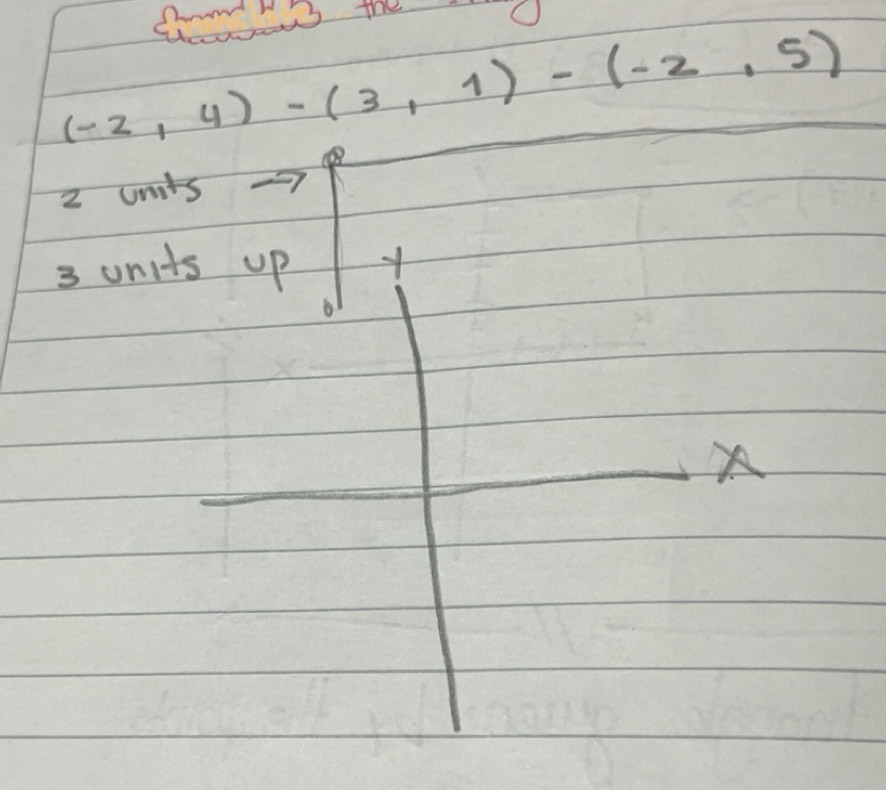 translate the
(-2, 4) - (3, 1) - (-2, 5)
2 units →
3 units up
Y
X